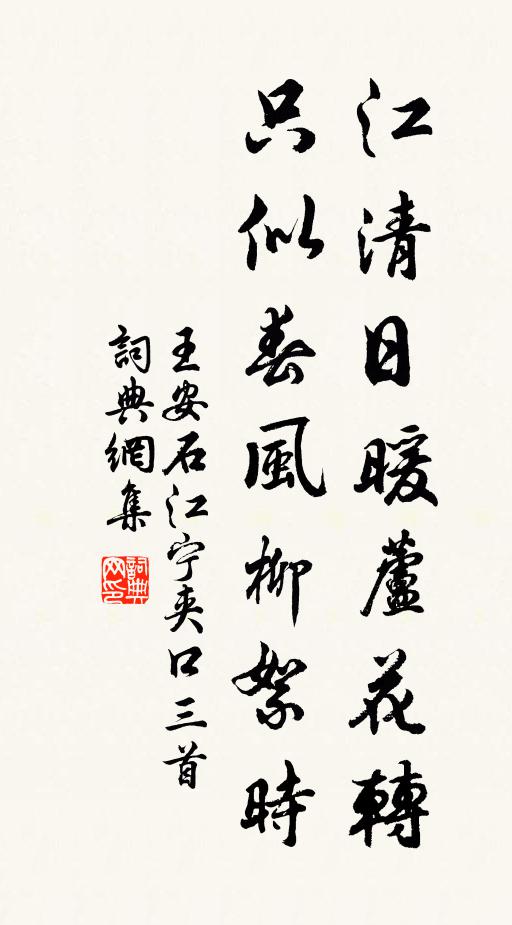 江清日暖蘆花轉
只似春風柳絮時
王安石江宁夹口三首
詞典網集
詞典网印